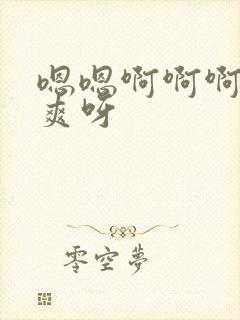 嗯嗯啊啊啊
爽呀
零空夢